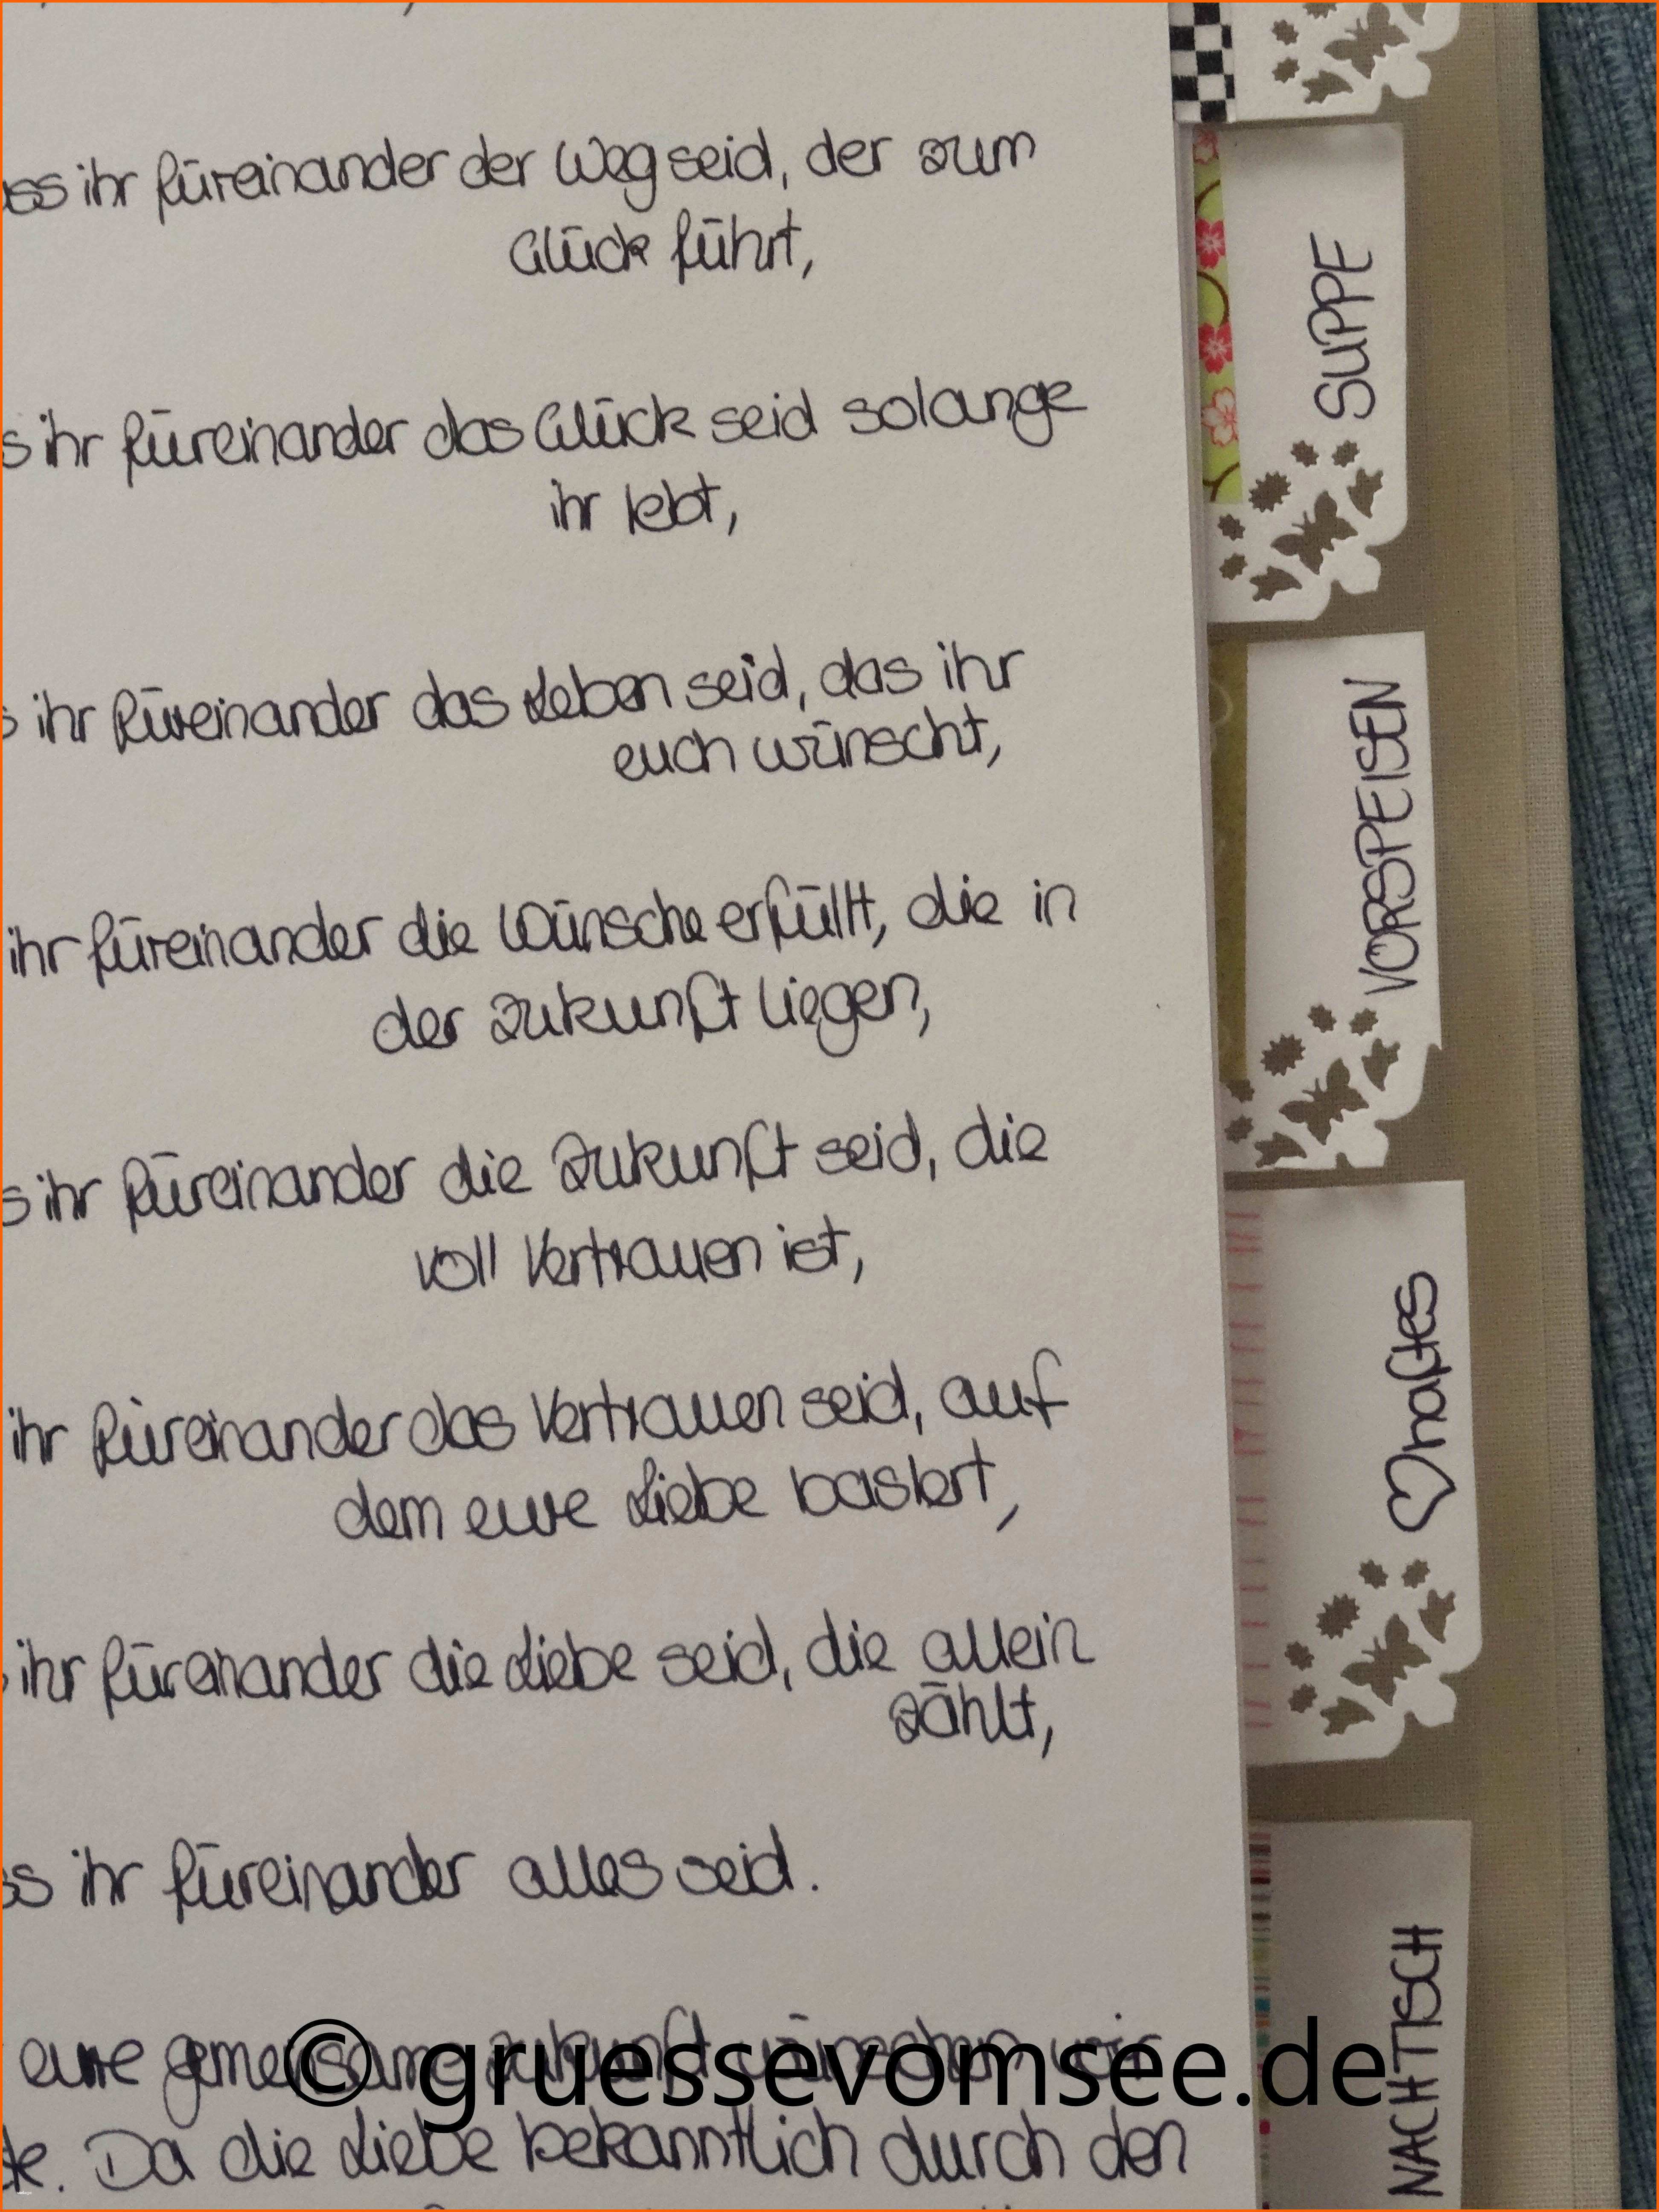 ss ihr füreinander der Weg seid, der zum
Glück führt,
s ihr füreinander das Glück seid solange
ihr lebt,
s ihr füreinander das Leben seid, das ihr
euch wünscht,
ihr füreinander die Wünsche erfüllt, die in
der Zukunft liegen,
s ihr füreinander die Zukunft seid, die
voll Vertrauen ist,
ihr füreinander das Vertrauen seid, auf
dem eure Liebe basiert,
ihr füreinander die Liebe seid, die allein
zählt,
ss ihr füreinander alles seid.
eure gemeinsame Zukunft wünschen wir
Da die Liebe bekanntlich durch den
SUPPE
VORSPEISEN
♡haftes
NACHTISCH
© gruessevomsee.de